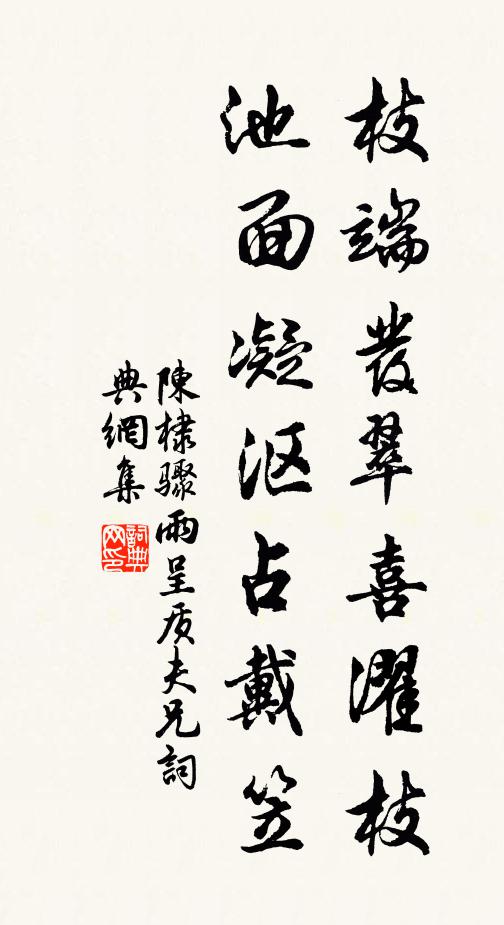 枝端發翠喜濯枝
池面凝漚占戴笠
陳棣驟雨呈质夫兄詞
典網集
詞典
网印